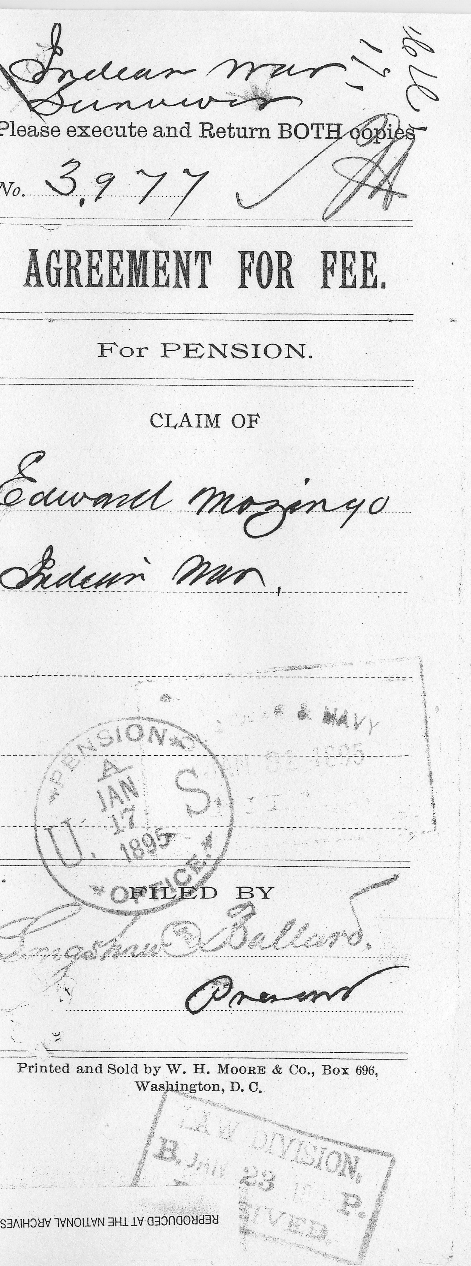 Indian War
Survivor
Please execute and Return BOTH copies
No. 3,977
AGREEMENT FOR FEE.
For PENSION.
CLAIM OF
Edward Mozingo
Indian War,
& NAVY
1895
PENSION
A
JAN
17
1895
U. S.
OFFICE.
FILED BY
Ballard.
Printed and Sold by W. H. MOORE & Co., Box 696,
Washington, D. C.
LAW DIVISION,
B. JAN 23 P.
REPRODUCED AT THE NATIONAL ARCHIVES